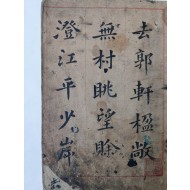 去郭軒楹敞
無村眺望賒
澄江平少岸